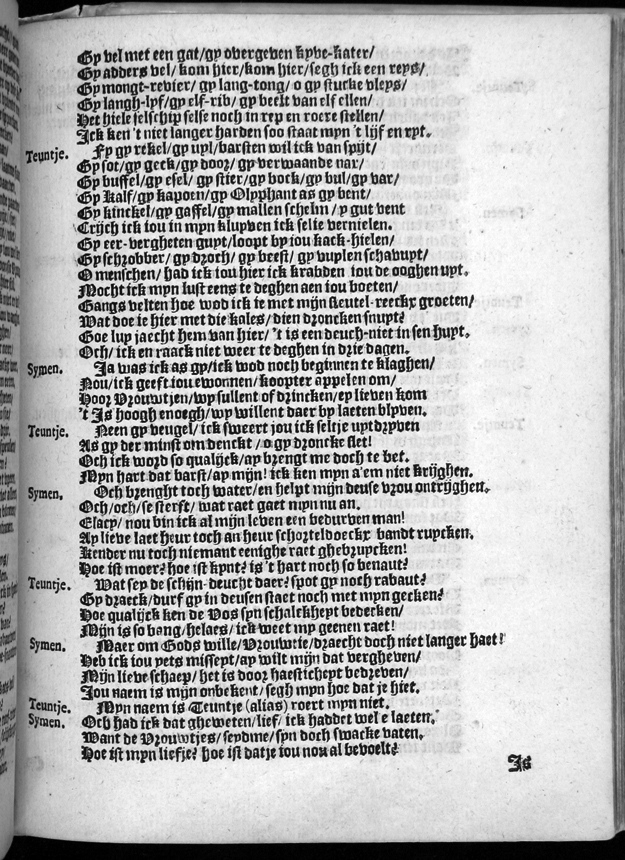 Gy vel met een gat/gy overgeven kyve-kater/
Gy adders vel/ kom hier/kom hier/segh ick een reys/
Gy mongt-revier/ gy lang-tong/ o gy stucke vleys/
Gy langh-lyf/ gy elf-rib/ gy beelt van elf ellen/
Het hiele selschip selse noch in rep en roere stellen/
Ick ken 't niet langer harden soo staat myn 't lijf en ryt.
Teuntje. Fy gy rekel/gy uyl/barsten wil ick van spijt/
Gy sot/gy geck/gy door/ gy verwaande nar/
Gy buffel/gy esel/ gy stier/gy bock/gy bul/gy var/
Gy Kalf/gy kapoen/gy Olyphant as gy bent/
Gy kinckel/gy gaffel/gy mallen schelm / y gut vent
Crijch ick iou in myn kluyven ick selje vernielen.
Gy eer-vergheten guyt/loopt by iou kack-hielen/
Gy schrobber/ gy droch/ gy beest/ gy vuylen schavuyt/
O menschen/ had ick iou hier ick krabden iou de ooghen uyt.
Mocht ick myn lust eens te deghen aen iou boeten/
Gangs velten hoe wod ick ie met mijn sleutel-reeckx groeten/
Wat doe ie hier met die kales/ dien droncken snuyt?
Goe luy jaecht hem van hier/ 't is een deuch-niet in sen huyt.
Och/ ick en raack niet weer te deghen in drie dagen.
Symen. Ja was ick as gy/ick wod noch beginnen te klaghen/
Nou/ ick geeft iou ewonnen/ koopter appelen om/
Hoor Vrouwtjen/wy sullent of drincken/ey lieven kom
't Is hoogh enoegh/wy willent daer by laeten blyven.
Teuntje. Neen gy veugel/ ick sweert jou ick seltje uytdryven
As gy der minst om denckt / o gy droncke slet!
Och ick word so qualijck/ay brengt me doch te bet.
Myn hart dat barst/ay mijn! ick ken myn a'em niet krijghen.
Symen. Och brenght toch water/en helpt mijn deuse vrou ontrijghen.
Och/och/se sterft/ wat raet gaet myn nu an.
Elacy/ nou bin ick al mijn leven een bedurven man!
Ay lieve laet heur toch an heur schorteldoeckx bandt ruycken.
Kender nu toch niemant eenighe raet ghebruycken!
Hoe ist moer? hoe ist kynt? is 't hart noch so benaut?
Teuntje. Wat sey de schijn-deucht daer? spot gy noch rabaut?
Gy draeck/durf gy in deusen staet noch met myn gecken?
Hoe qualijck ken de Vos syn schalckheyt bedecken/
Mijn is so bang/helaes/ ick weet my geenen raet!
Symen. Maer om Gods wille/ Vrouwtie/draecht doch niet langer haet?
Heb ick iou yets missept/ay wilt mijn dat vergheven/
Mijn lieve schaep/ het is door haesticheyt bedreven/
Iou naem is mijn onbekent/segh myn hoe dat je hiet.
Teuntje. Myn naem is Teuntje (alias) roert myn niet.
Symen. Och had ick dat gheweten/lief/ ick haddet wel e laeten.
Want de Vrouwtjes/ seydme/syn doch swacke vaten.
Hoe ist myn liefje? hoe ist datje iou nou al bevoelt?
Is